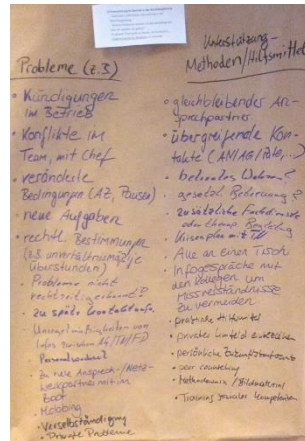 Probleme (z.B)
• Kündigungen
im Betrieb
• Konflikte im
Team, mit Chef
• veränderte
Bedingungen (AZ, Pausen)
• neue Aufgaben
• rechtl. Bestimmungen
(z.B unverhältnismäßige
Überstunden)
• Probleme nicht
rechtzeitig erkannt?
• zu späte Kontaktaufn.
Unregelmäßigkeiten von
Infos zwischen AG/TN/FD
Personalwechsel
Zu neue Ansprech-/Netz-
werkpartner
• Mobbing
• Verselbständigung
• Private Probleme
Unterstützung-
Methoden/Hilfsmittel
• gleichbleibender An-
sprechpartner
• übergreifende Kon-
takte (AN/AG/
• betreutes Wohnen?
• gesetzl. Betreuung?
• zusätzliche Fachdienste
oder therap. Begleitung
Krisenplan mit TN
• Alle an einen Tisch
• Infogespräche mit
den Kollegen um
Missverständnisse
zu vermeiden
• praktische Hilfsmittel
• privates Umfeld einbeziehen
• persönliche Zukunftskonferenz
• peer counseling
• /Bildmaterial
• Training sozialer Kompetenzen